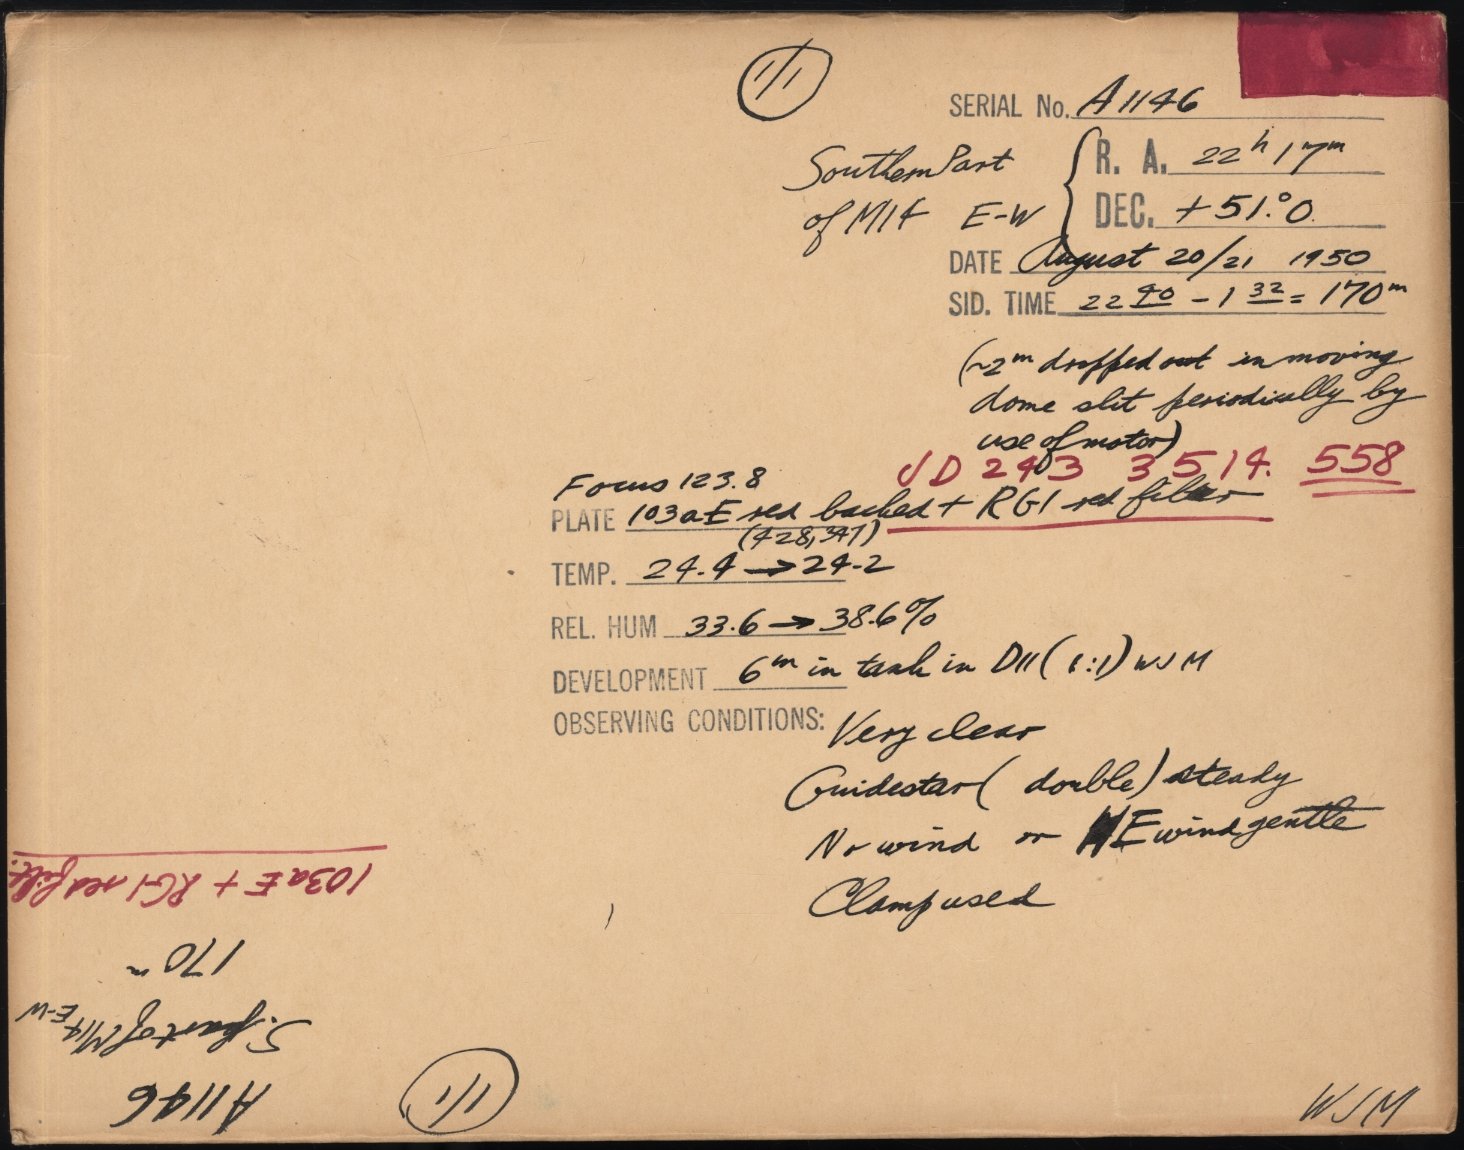 1/1
SERIAL No. A1146
Southern Part
of M14 E-W
R. A. 22h 17m
DEC. +51.°0
DATE August 20/21 1950
SID. TIME 22 40 - 1 32 = 170m
(~2m dropped out in moving
dome slit periodically by
use of motor)
JD 243 3514. 558
Focus 123.8
PLATE 103aE red backed + RG1 red filter
(428,347)
TEMP. 24.4 → 24.2
REL. HUM 33.6 → 38.6%
DEVELOPMENT 6m in tank in D11 (1:1) WJM
OBSERVING CONDITIONS: Very clear
Guidestar (double) steady
No wind or NE wind gentle
Clamp used
WJM
1/1
A1146
S. part of M14 E-W
170m
103aE + RG1 red filt.